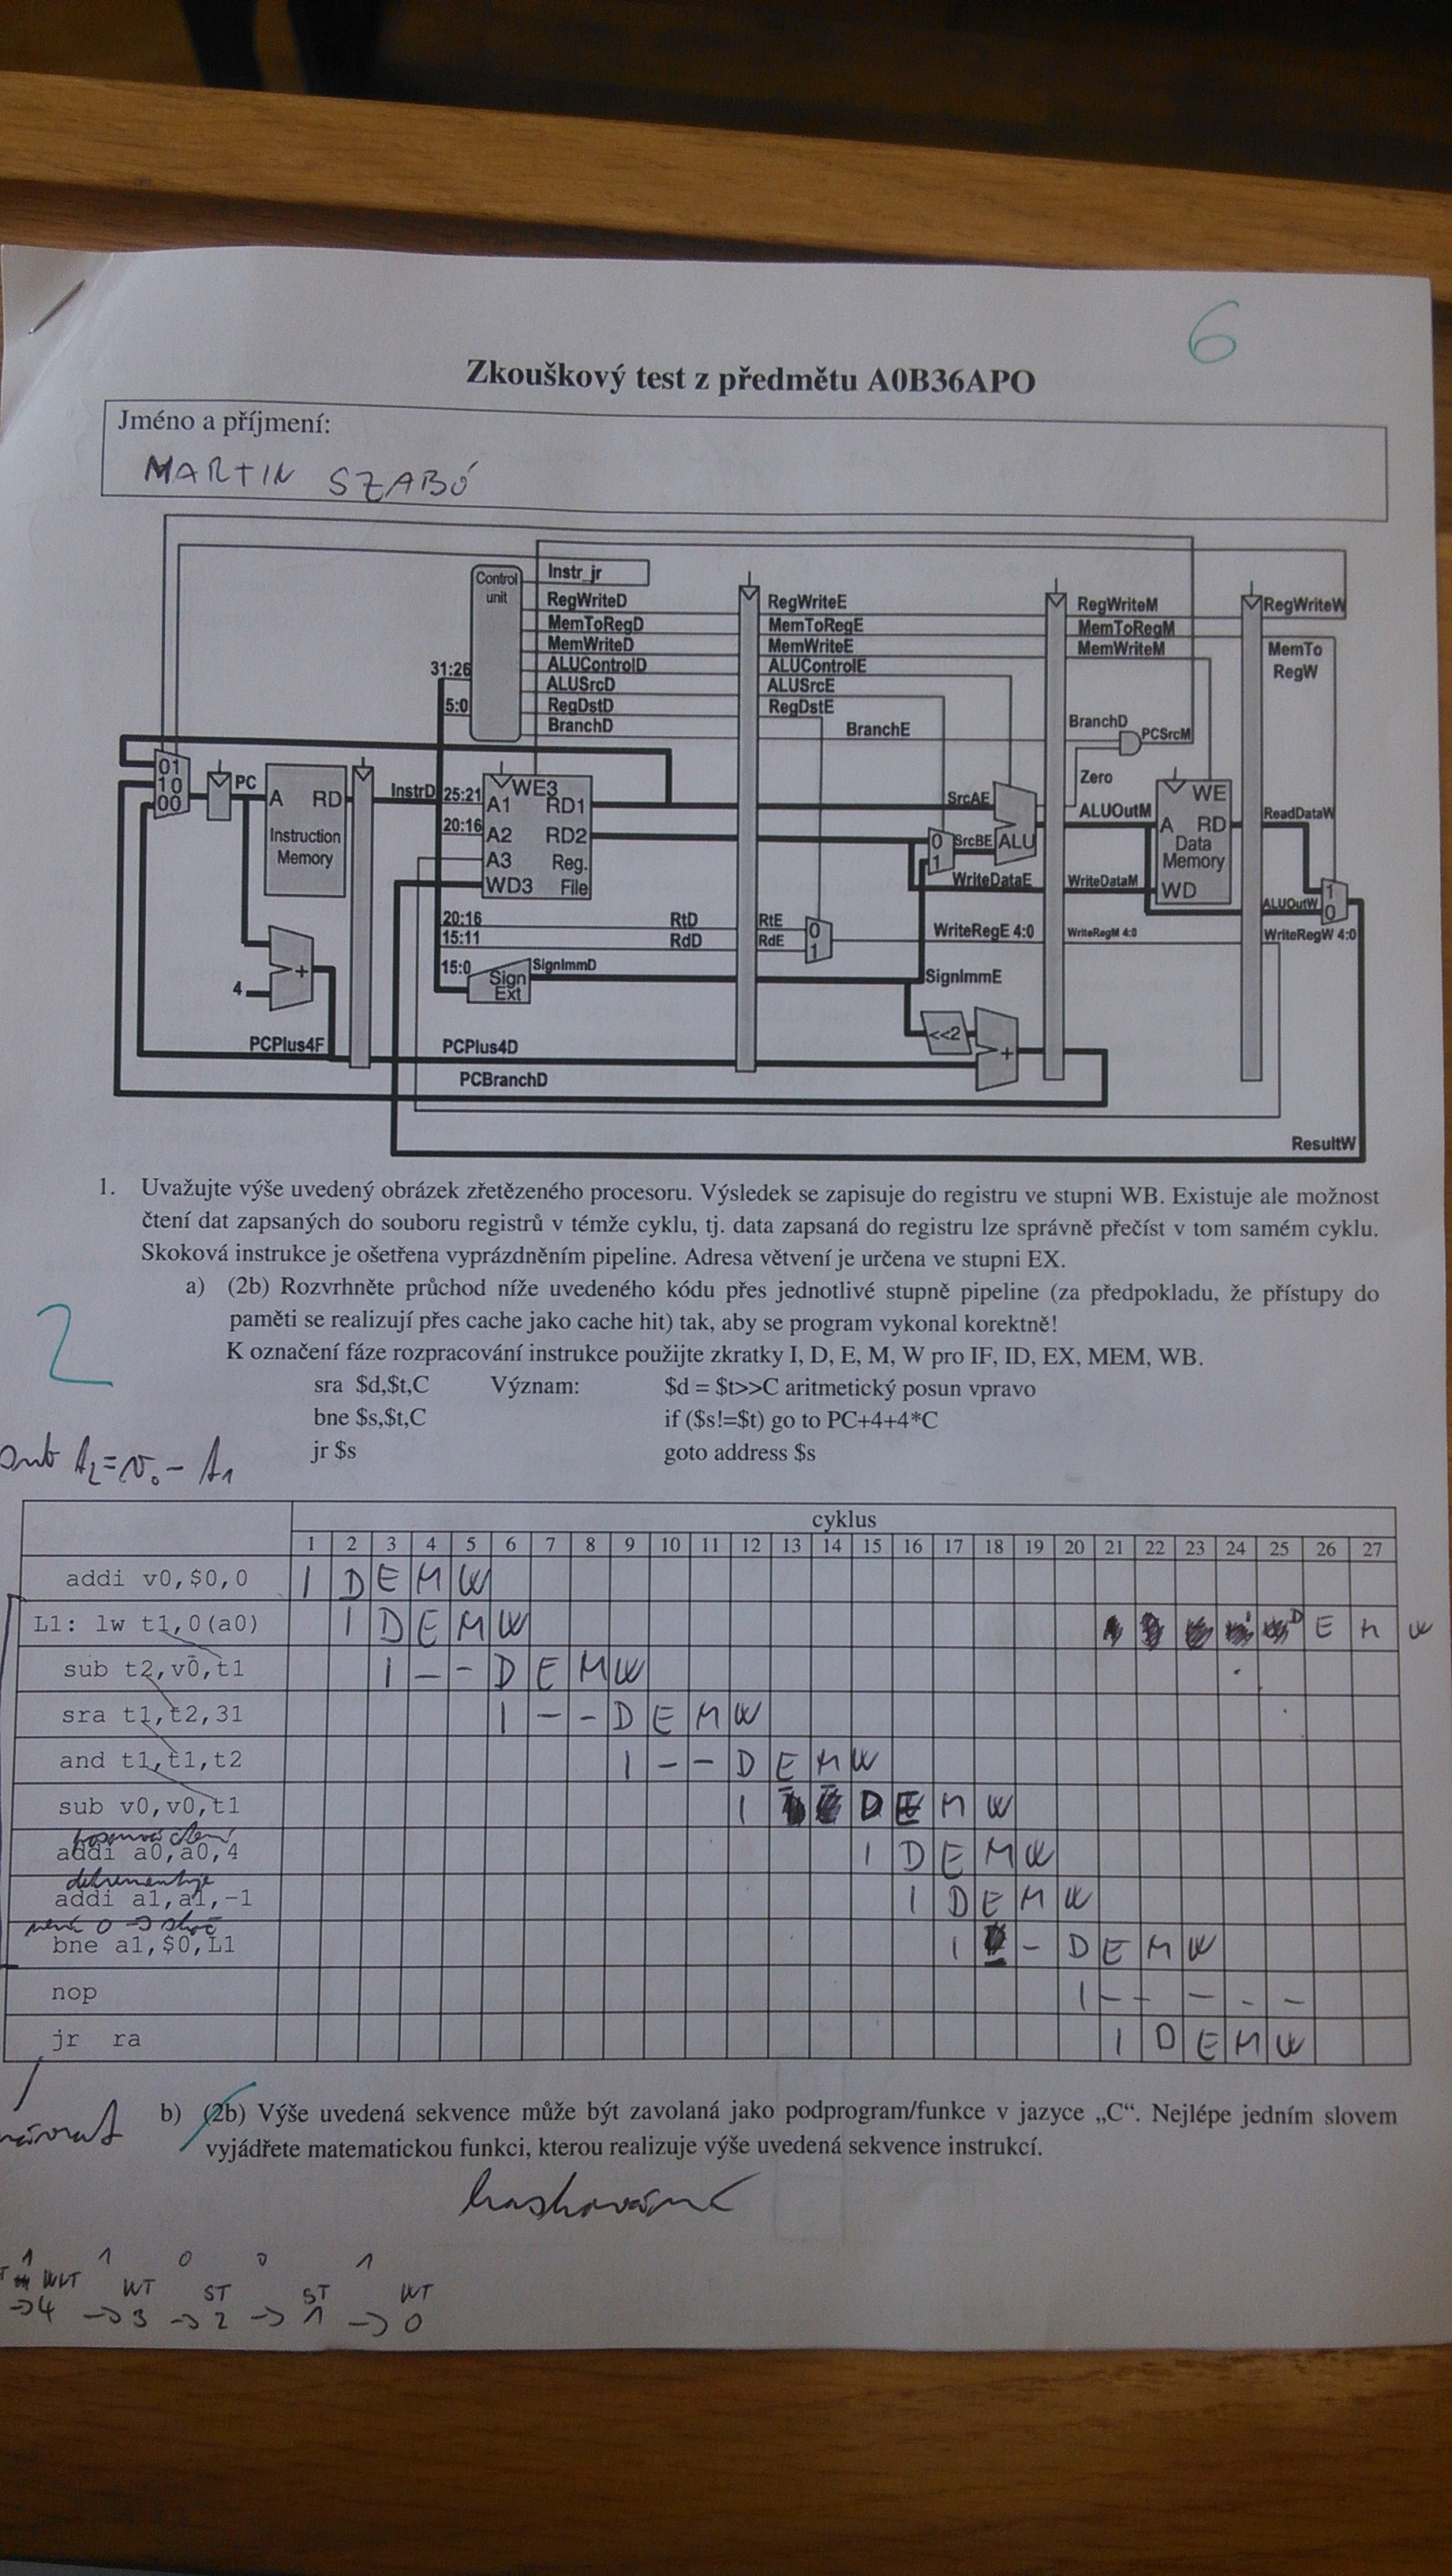 6
Zkouškový test z předmětu A0B36APO
Jméno a příjmení:
MARTIN SZABÓ
Control unit
Instr_jr
RegWriteD
MemToRegD
MemWriteD
ALUControlD
ALUSrcD
RegDstD
BranchD
31:26
5:0
RegWriteE
MemToRegE
MemWriteE
ALUControlE
ALUSrcE
RegDstE
BranchE
RegWriteM
MemToRegM
MemWriteM
BranchD
PCSrcM
RegWriteW
MemTo
RegW
01
10
00
PC
A RD
Instruction
Memory
InstrD
25:21
20:16
WE3
A1 RD1
A2 RD2
A3 Reg.
WD3 File
SrcAE
0
1
SrcBE
ALU
Zero
ALUOutM
WE
A RD
Data
Memory
WD
ReadDataW
WriteDataE
WriteDataM
ALUOutW
1
0
20:16
15:11
RtD
RdD
RtE
RdE
0
1
WriteRegE 4:0
WriteRegM 4:0
WriteRegW 4:0
15:0
Sign
Ext
SignImmD
SignImmE
4
+
<<2
+
PCPlus4F
PCPlus4D
PCBranchD
ResultW
1. Uvažujte výše uvedený obrázek zřetězeného procesoru. Výsledek se zapisuje do registru ve stupni WB. Existuje ale možnost
čtení dat zapsaných do souboru registrů v témže cyklu, tj. data zapsaná do registru lze správně přečíst v tom samém cyklu.
Skoková instrukce je ošetřena vyprázdněním pipeline. Adresa větvení je určena ve stupni EX.
a) (2b) Rozvrhněte průchod níže uvedeného kódu přes jednotlivé stupně pipeline (za předpokladu, že přístupy do
paměti se realizují přes cache jako cache hit) tak, aby se program vykonal korektně!
K označení fáze rozpracování instrukce použijte zkratky I, D, E, M, W pro IF, ID, EX, MEM, WB.
2
sra $d,$t,C Význam: $d = $t>>C aritmetický posun vpravo
bne $s,$t,C if ($s!=$t) go to PC+4+4*C
jr $s goto address $s
sub t2=v0-t1
cyklus
1 2 3 4 5 6 7 8 9 10 11 12 13 14 15 16 17 18 19 20 21 22 23 24 25 26 27
addi v0,$0,0 I D E M W
L1: lw t1,0(a0) I D E M W D E M W
sub t2,v0,t1 I - - D E M W
sra t1,t2,31 I - - D E M W
and t1,t1,t2 I - - D E M W
sub v0,v0,t1 I D E M W
addi a0,a0,4 I D E M W
dekrementuje
addi a1,a1,-1 I D E M W
není 0 -> skoč
bne a1,$0,L1 I - D E M W
nop I - - - - -
jr ra I D E M W
návrat
b) (2b) Výše uvedená sekvence může být zavolaná jako podprogram/funkce v jazyce „C“. Nejlépe jedním slovem
vyjádřete matematickou funkci, kterou realizuje výše uvedená sekvence instrukcí.
hashování
1 1 0 0 1
WNT WT ST ST WT
->4 ->3 ->2 ->1 ->0